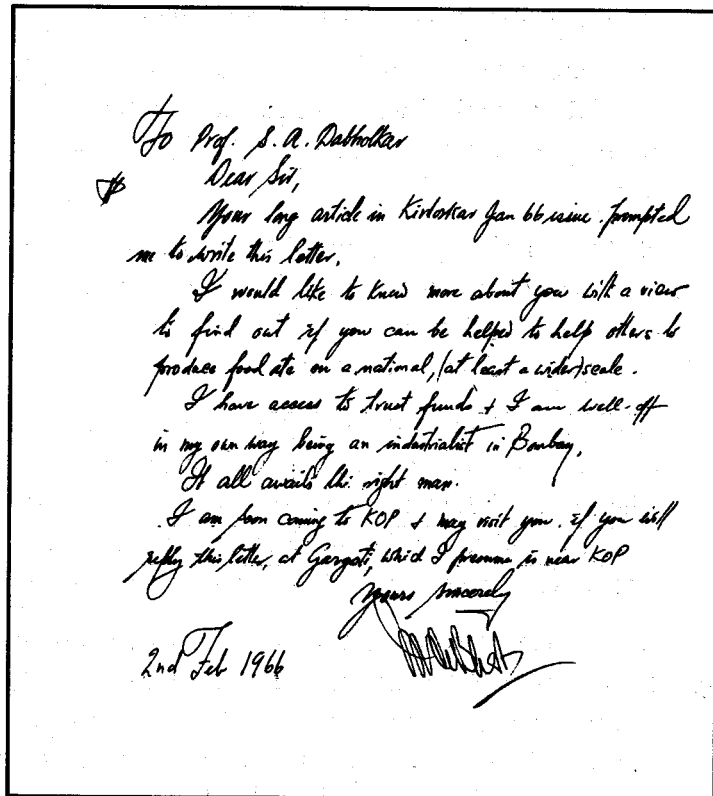 To Prof. S. A. Dabholkar
Dear Sir,
Your long article in Kirloskar Jan 66 issue prompted
me to write this letter.
I would like to know more about you with a view
to find out if you can be helped to help others to
produce food etc on a national, (at least a wider) scale.
I have access to trust funds + I am well-off
in my own way being an industrialist in Bombay.
It all awaits the right man.
I am soon coming to KOP + may visit you, if you will
reply this letter, at Gargoti, which I presume is near KOP
Yours sincerely
2nd Feb 1966